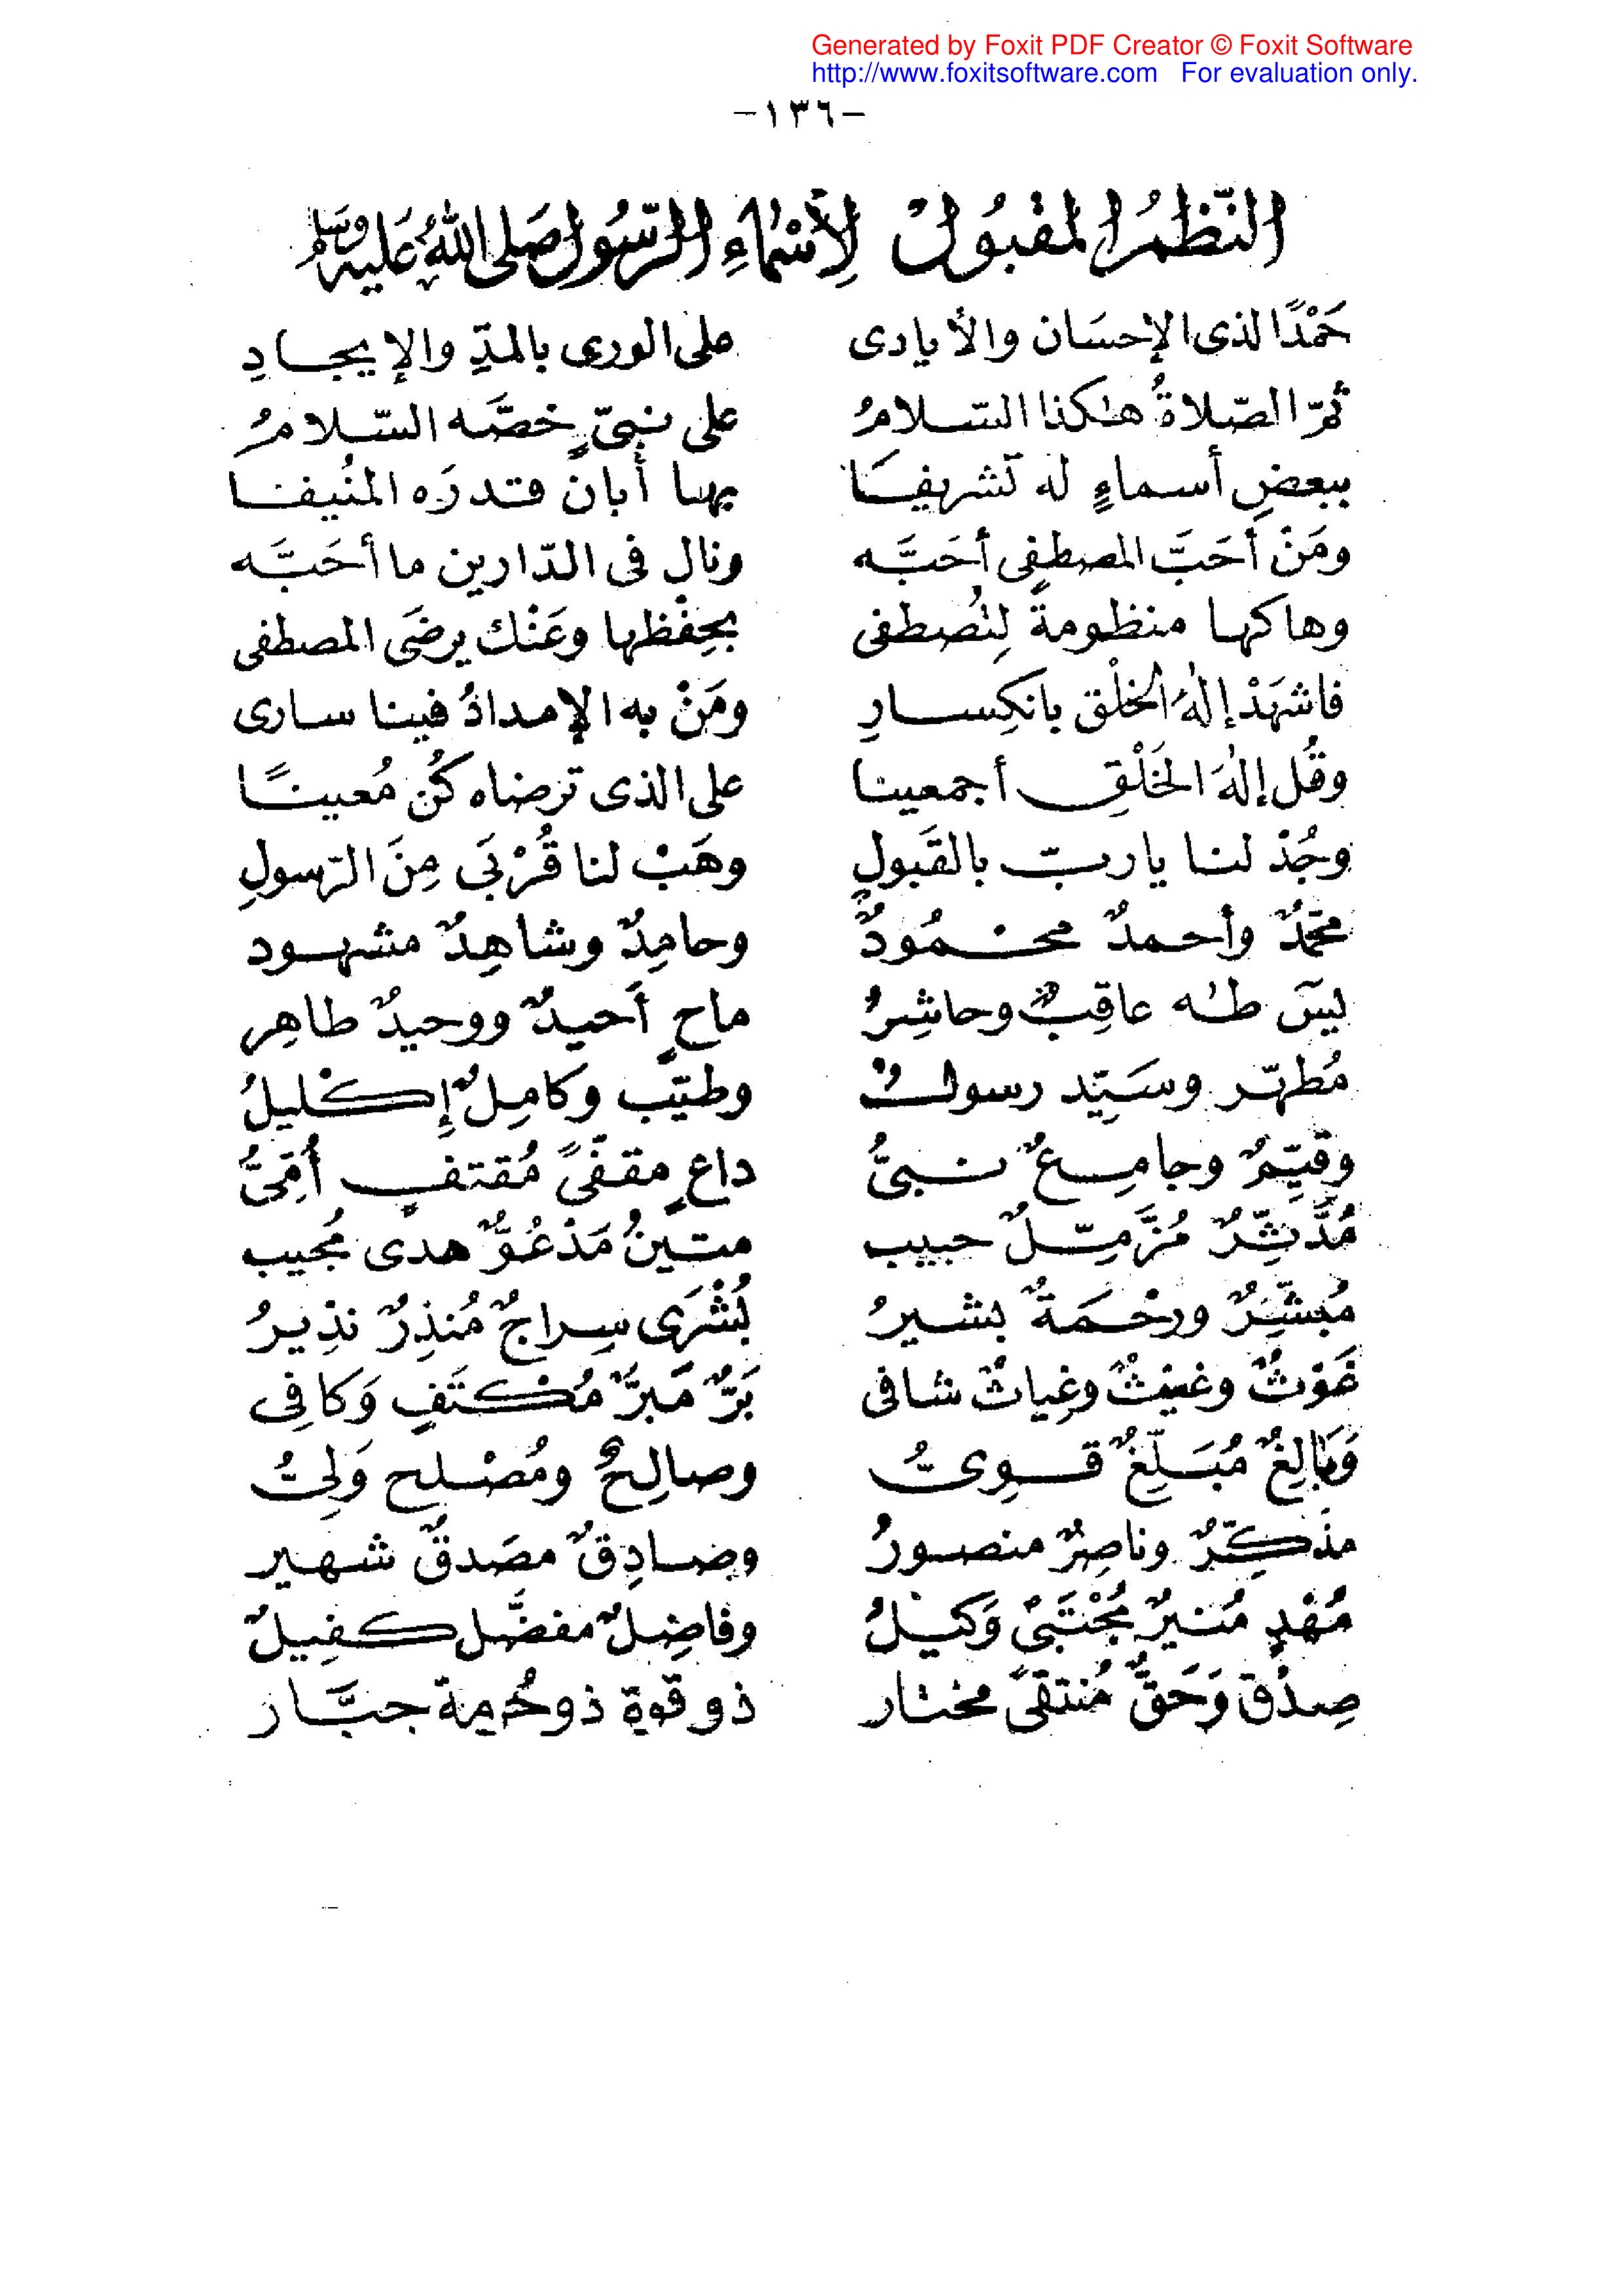 Generated by Foxit PDF Creator © Foxit Software
http://www.foxitsoftware.com For evaluation only.
-١٣٦-
النّظمُ المقبُولُ لِأسْمَاءِ الرّسُول صَلى اللهُ عَليه وسَلم
حَمْدًا لذى الإحسَان والأيادى على الورى بالمدِّ والإيجادِ
ثمّ الصّلاةُ هٰكذا السّلامُ على نبىّ خصَّه السّلامُ
ببعضِ أسماءٍ له تشريفَا بها أبان قدرَه المنُيفا
ومَنْ أحَبَّ المصطفى أحَبَّه ونال فى الدّارين ما أحَبَّه
وهاكها منظومةً لِتُصطفى بحِفْظها وعَنْك يرضَى المصطفى
فاشهَدْ إلٰهَ الخلْق بانكِسارِ ومَنْ به الإمدادُ فينا سارى
وقُل إلٰهَ الخَلْقِ أجمعينا على الذى ترضاه كُن مُعينًا
وجُدْ لنا يا ربّ بالقَبولِ وهَبْ لنا قُرْبَى مِنَ الرّسولِ
محمّدٌ وأحمدٌ محمُودٌ وحامِدٌ وشاهِدٌ مشهود
يسَ طٰه عاقِبٌ وحاشِرُ ماحٍ أَحيدٌ ووحيدٌ طاهِر
مُطهّر وسَيِّد رسولٌ وطيّب وكامِلٌ إكْليلُ
وقيِّمٌ وجامِعٌ نبىُّ داعٍ مقفّىً مُقتفٍ أُمِّىُّ
مُدَّثِّرٌ مُزَّمِّلٌ حبيب متينُ مَدْعُوٌّ هدى مُجيب
مُبشِّرٌ ورحْمَةٌ بشيرُ بُشْرَى سِراجٌ مُنذِرٌ نذِيرُ
غَوْثٌ وغيْثٌ وغِياثٌ شافى بَرٌّ مَبرٌّ مُكْتَفٍ وَكافِى
وَبَالِغٌ مُبَلِّغٌ قوِىُّ وصالِحٌ ومُصْلح وَلِىُّ
مذَكِّرٌ وناصِرٌ منصورُ وصادِقٌ مصَدقٌ شهير
مُهْدٍ مُنيرٌ مُجْتَبىً وَكيْلُ وفاضِلٌ مفضَّل كفِيلٌ
صِدْق وَحَقٌّ مُنتقىً مختار ذو قوة ذو حُرمة جبَّار